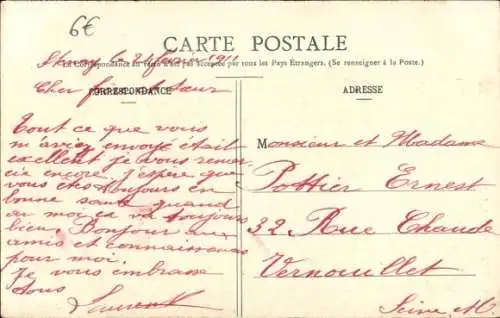 6€
CARTE POSTALE
La Correspondance au recto n'est pas acceptée par tous les Pays Étrangers. (Se renseigner à la Poste.)
le 21 février 1911
CORRESPONDANCE
Cher frère et sœur
Tout ce que vous
m'aviez envoyé était
excellent je vous remer
cie encore. J'espère que
vous êtes toujours en
bonne santé quand
au moi ça va toujours
bien. Bonjour aux
amis et connaissances
pour moi.
Je vous embrasse
tous
Laurent
ADRESSE
Monsieur et Madame
Pottier Ernest
32 Rue Chaude
Vernouillet
Seine